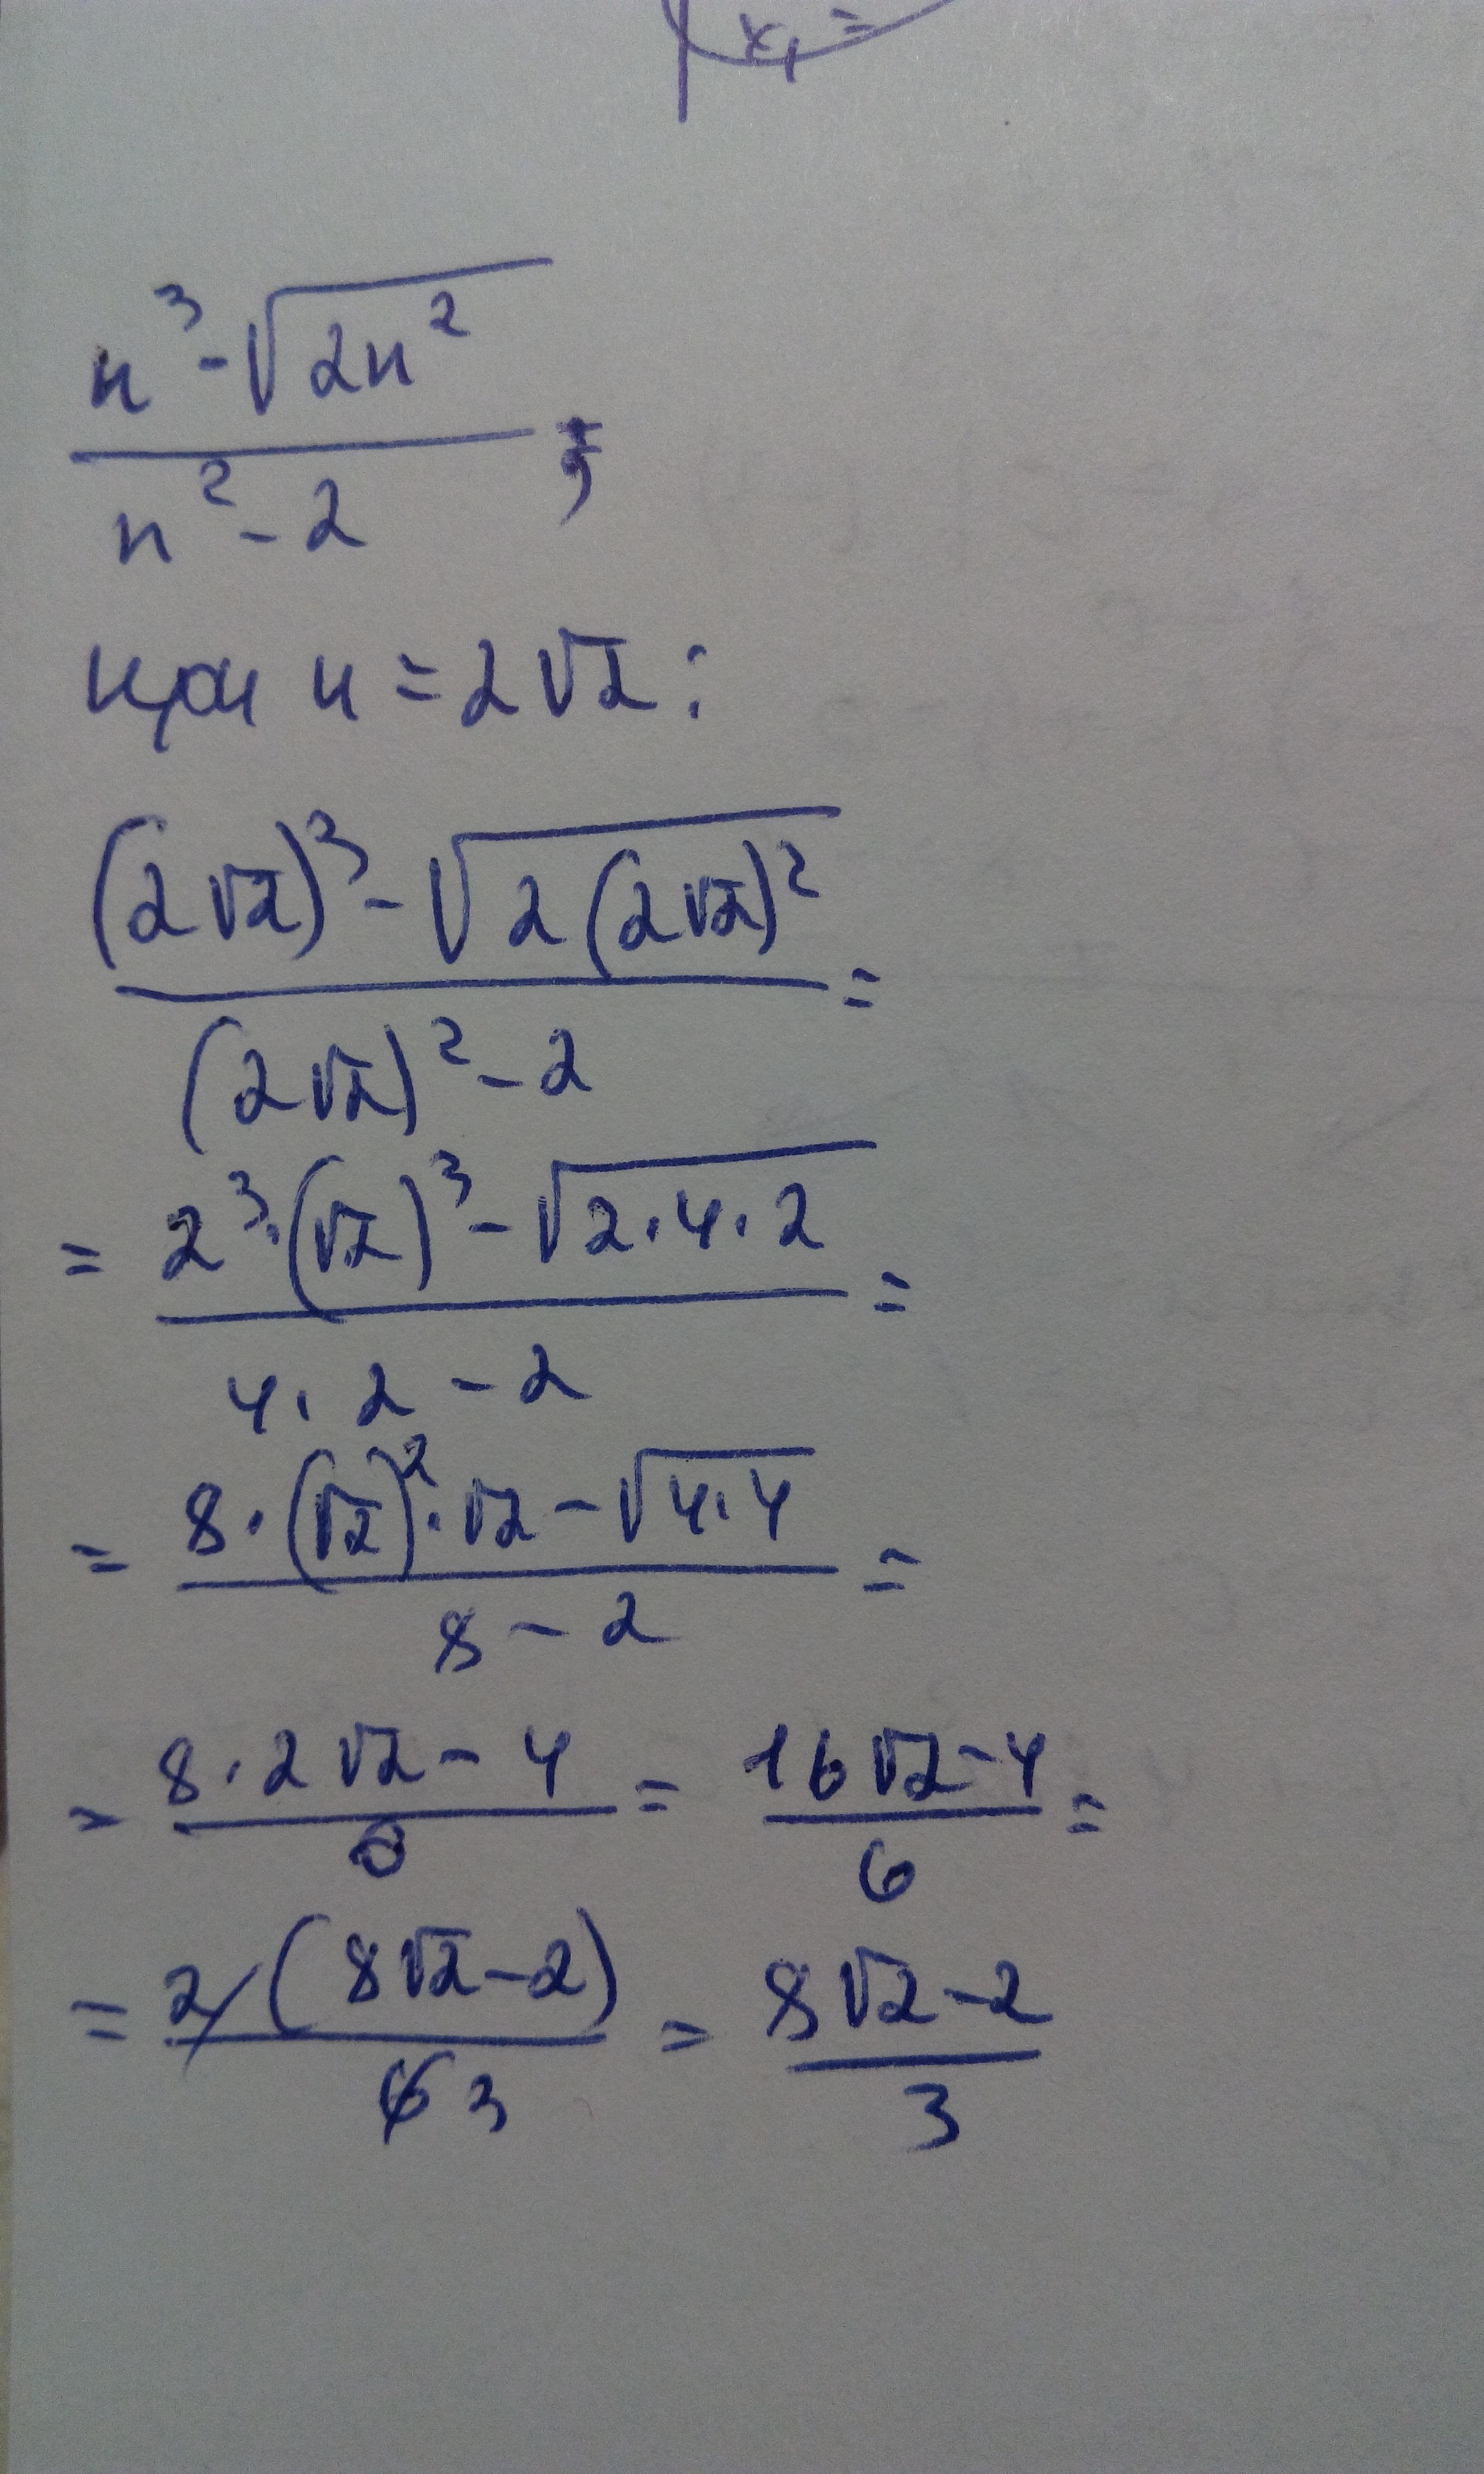 x₁ =
(n³ - √(2n²)) / (n² - 2) ;
при n = 2√2 :
((2√2)³ - √(2(2√2)²)) / ((2√2)² - 2) =
= (2³·(√2)³ - √(2·4·2)) / (4·2 - 2) =
= (8·(√2)²·√2 - √(4·4)) / (8 - 2) =
= (8·2√2 - 4) / 6 = (16√2 - 4) / 6 =
= 2(8√2 - 2) / 6 3 = (8√2 - 2) / 3